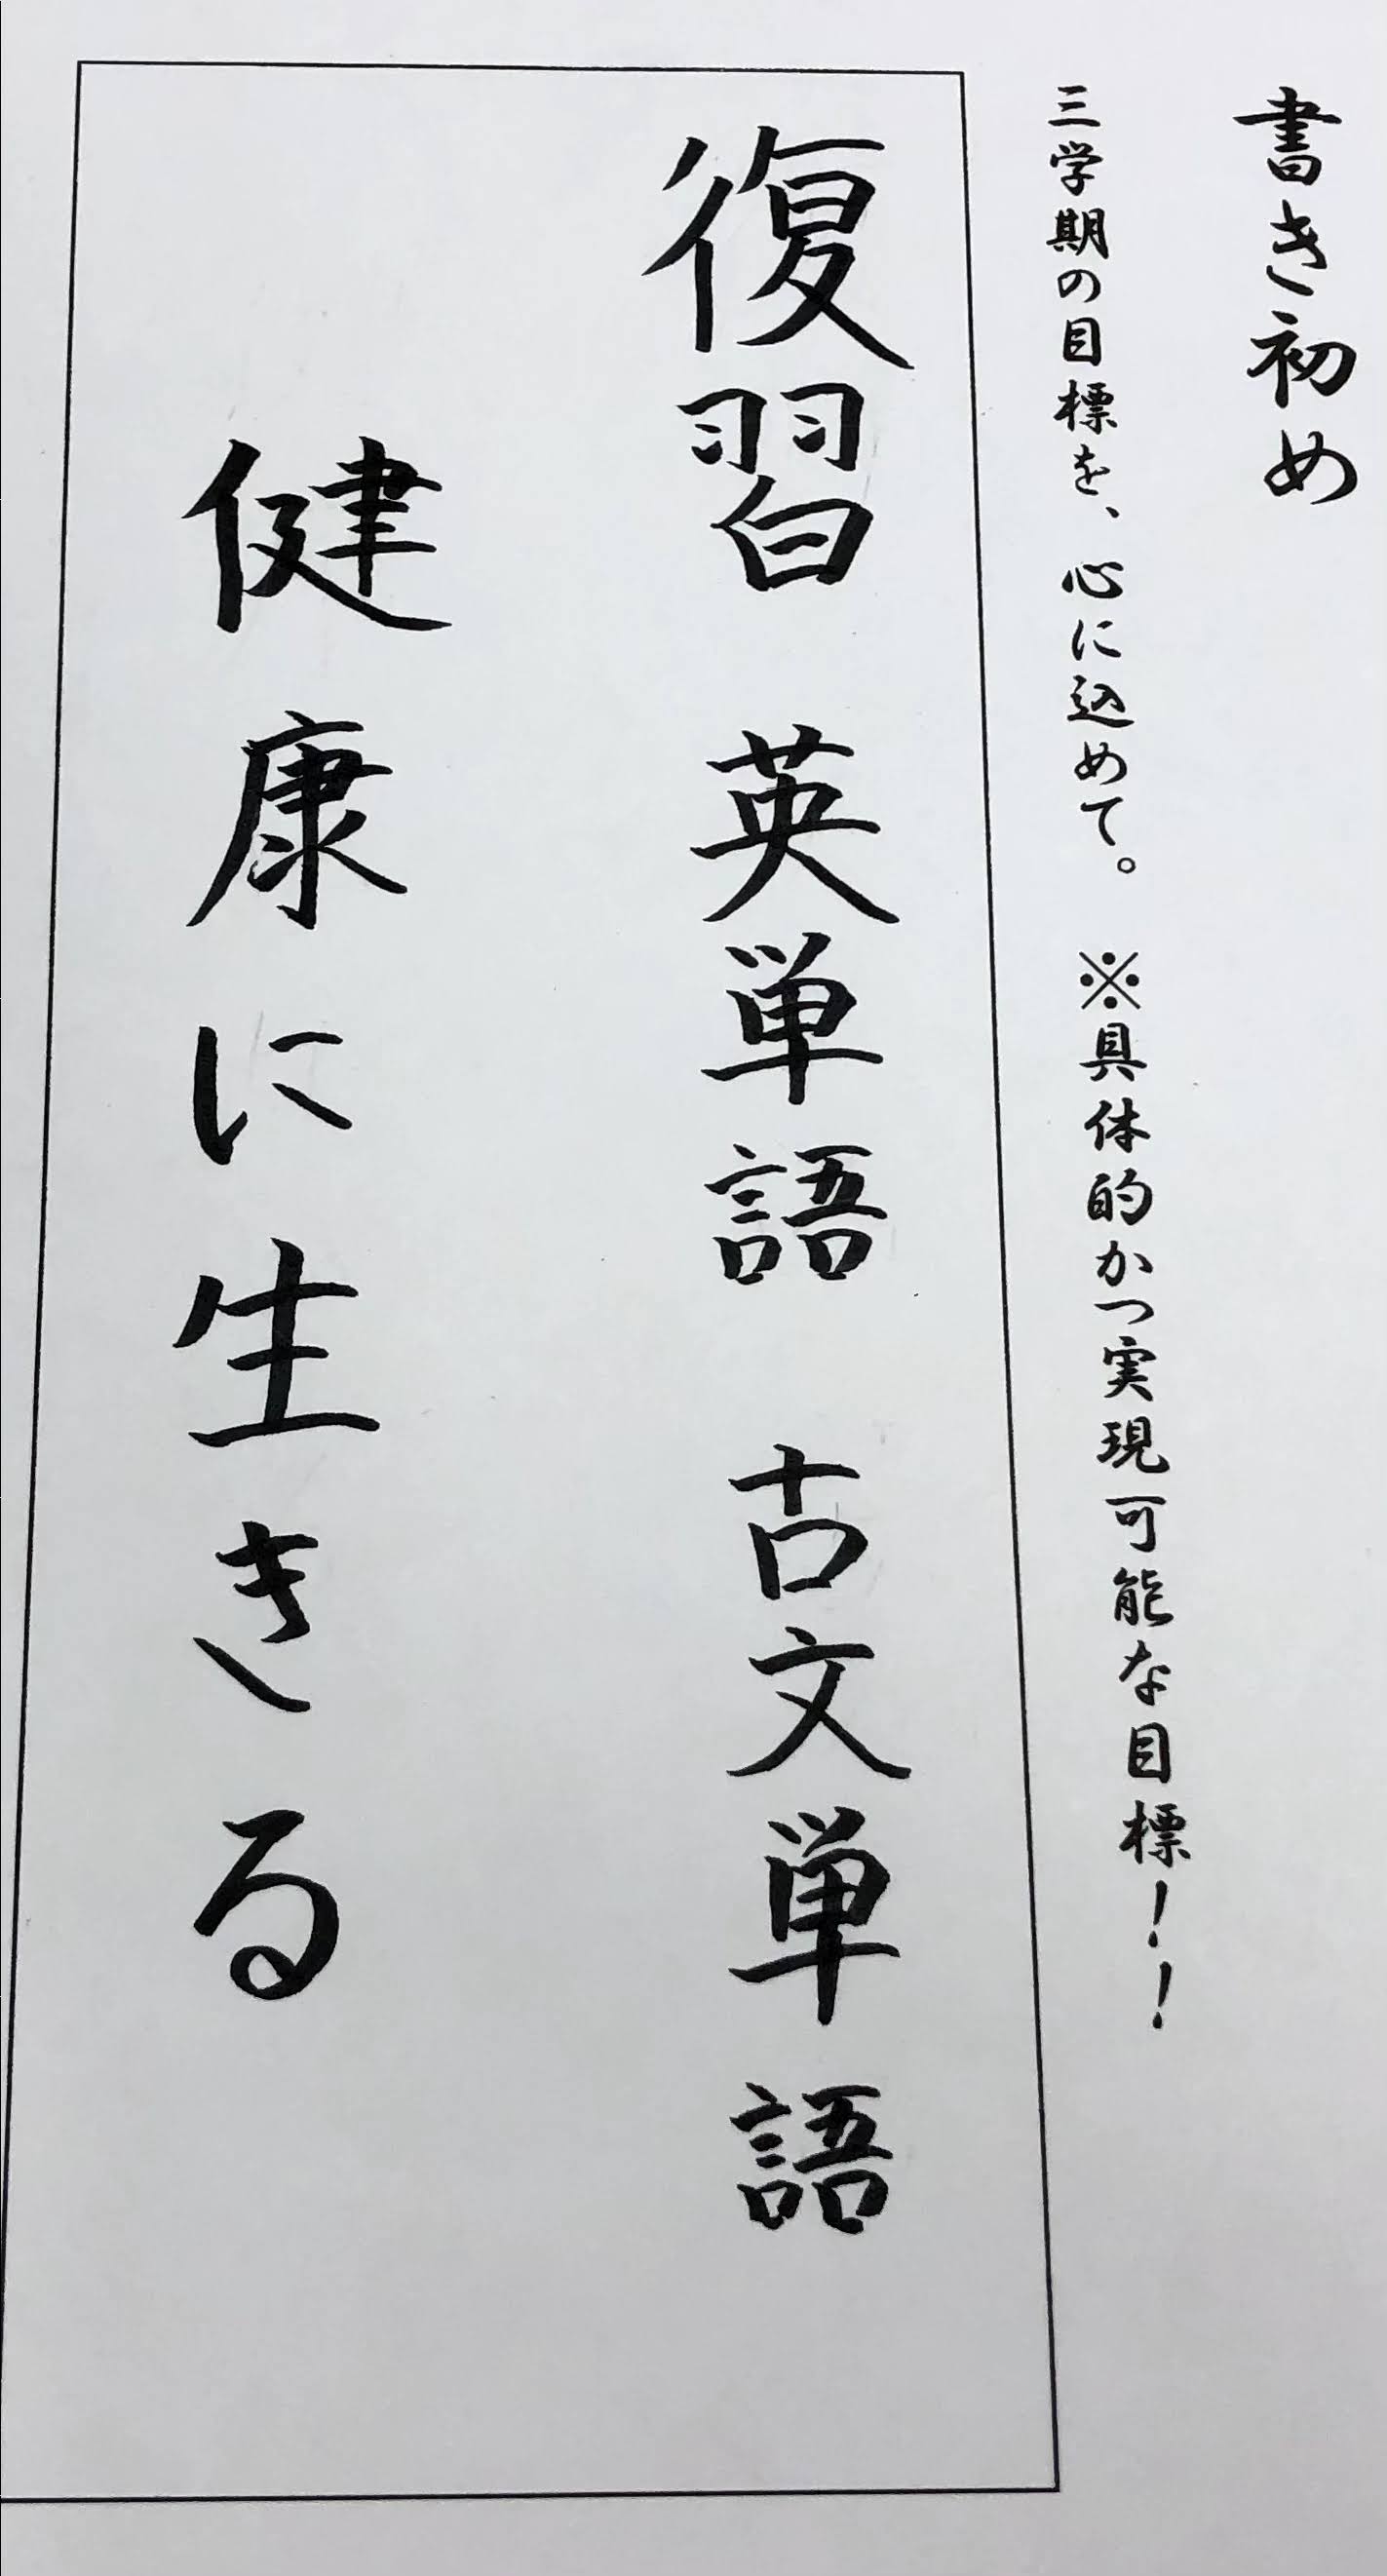 書き初め
三学期の目標を、心に込めて。 ※具体的かつ実現可能な目標!!
復習 英単語 古文単語
健康に生きる